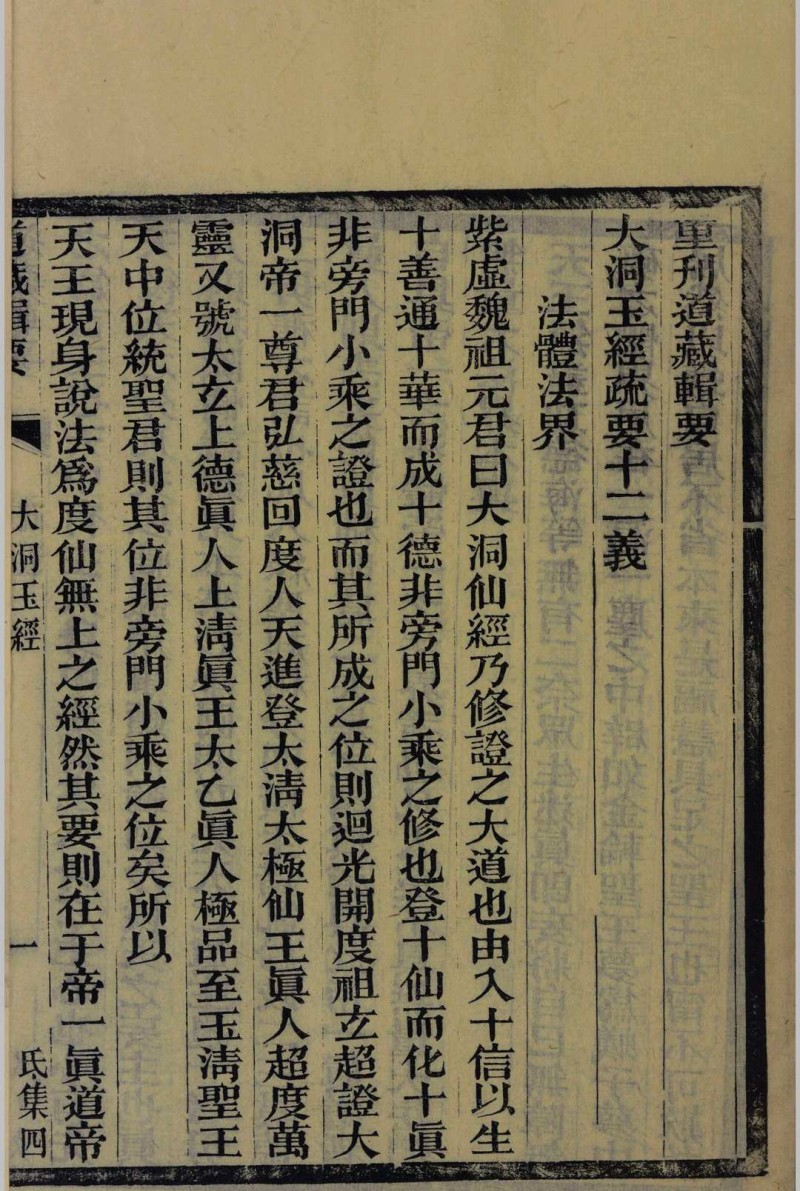 重刊道藏輯要
大洞玉經疏要十二義
法體法界
紫虛魏祖元君曰大洞仙經乃修證之大道也由入十信以生
十善通十華而成十德非旁門小乘之修也登十仙而化十眞
非旁門小乘之證也而其所成之位則迴光開度祖立超證大
洞帝一尊君弘慈回度人天進登太淸太極仙王眞人超度萬
靈又號太立上德眞人上淸眞王太乙眞人極品至玉淸聖王
天中位統聖君則其位非旁門小乘之位矣所以
天王現身說法爲度仙無上之經然其要則在于帝一眞道帝
道藏輯要 大洞玉經 一 氐集四